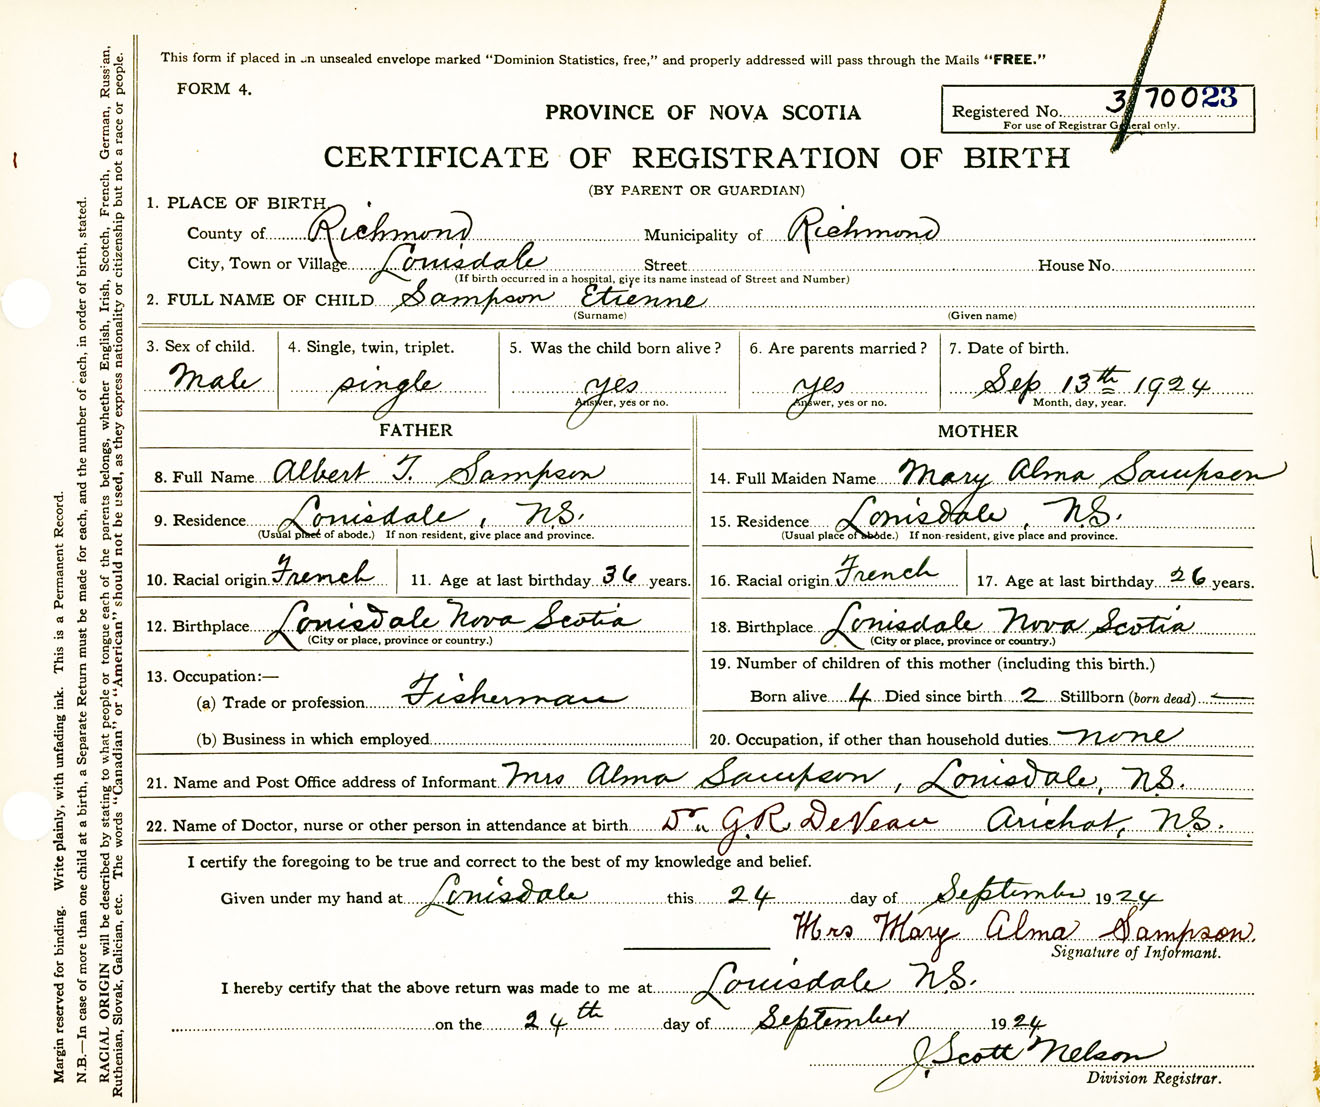 This form if placed in an unsealed envelope marked "Dominion Statistics, free," and properly addressed will pass through the Mails "FREE."
FORM 4.
PROVINCE OF NOVA SCOTIA
Registered No. 3/70023
For use of Registrar General only.
CERTIFICATE OF REGISTRATION OF BIRTH
(BY PARENT OR GUARDIAN)
1. PLACE OF BIRTH
County of Richmond Municipality of Richmond
City, Town or Village Louisdale Street House No.
(If birth occurred in a hospital, give its name instead of Street and Number)
2. FULL NAME OF CHILD Sampson Etienne
(Surname) (Given name)
3. Sex of child. 4. Single, twin, triplet. 5. Was the child born alive? 6. Are parents married? 7. Date of birth.
Male single yes yes Sep 13th 1924
Answer, yes or no. Answer, yes or no. Month, day, year.
FATHER MOTHER
8. Full Name Albert T. Sampson 14. Full Maiden Name Mary Alma Sampson
9. Residence Louisdale, N.S. 15. Residence Louisdale, N.S.
(Usual place of abode.) If non resident, give place and province. (Usual place of abode.) If non-resident, give place and province.
10. Racial origin French 11. Age at last birthday 36 years. 16. Racial origin French 17. Age at last birthday 26 years.
12. Birthplace Louisdale Nova Scotia 18. Birthplace Louisdale Nova Scotia
(City or place, province or country.) (City or place, province or country.)
13. Occupation:— 19. Number of children of this mother (including this birth.)
(a) Trade or profession Fisherman Born alive 4 Died since birth 2 Stillborn (born dead) —
(b) Business in which employed 20. Occupation, if other than household duties none
21. Name and Post Office address of Informant Mrs Alma Sampson, Louisdale, N.S.
22. Name of Doctor, nurse or other person in attendance at birth Dr. G.R. DeVeau Arichat, N.S.
I certify the foregoing to be true and correct to the best of my knowledge and belief.
Given under my hand at Louisdale this 24 day of September 1924
Mrs Mary Alma Sampson.
Signature of Informant.
I hereby certify that the above return was made to me at Louisdale N.S.
on the 24th day of September 1924
J. Scott Nelson
Division Registrar.
Margin reserved for binding. Write plainly, with unfading ink. This is a Permanent Record.
N.B.—In case of more than one child at a birth, a Separate Return must be made for each, and the number of each, in order of birth, stated.
RACIAL ORIGIN will be described by stating to what people or tongue each of the parents belongs, whether English, Irish, Scotch, French, German, Russian,
Ruthenian, Slovak, Galician, etc. The words "Canadian" or "American" should not be used, as they express nationality or citizenship but not a race or people.